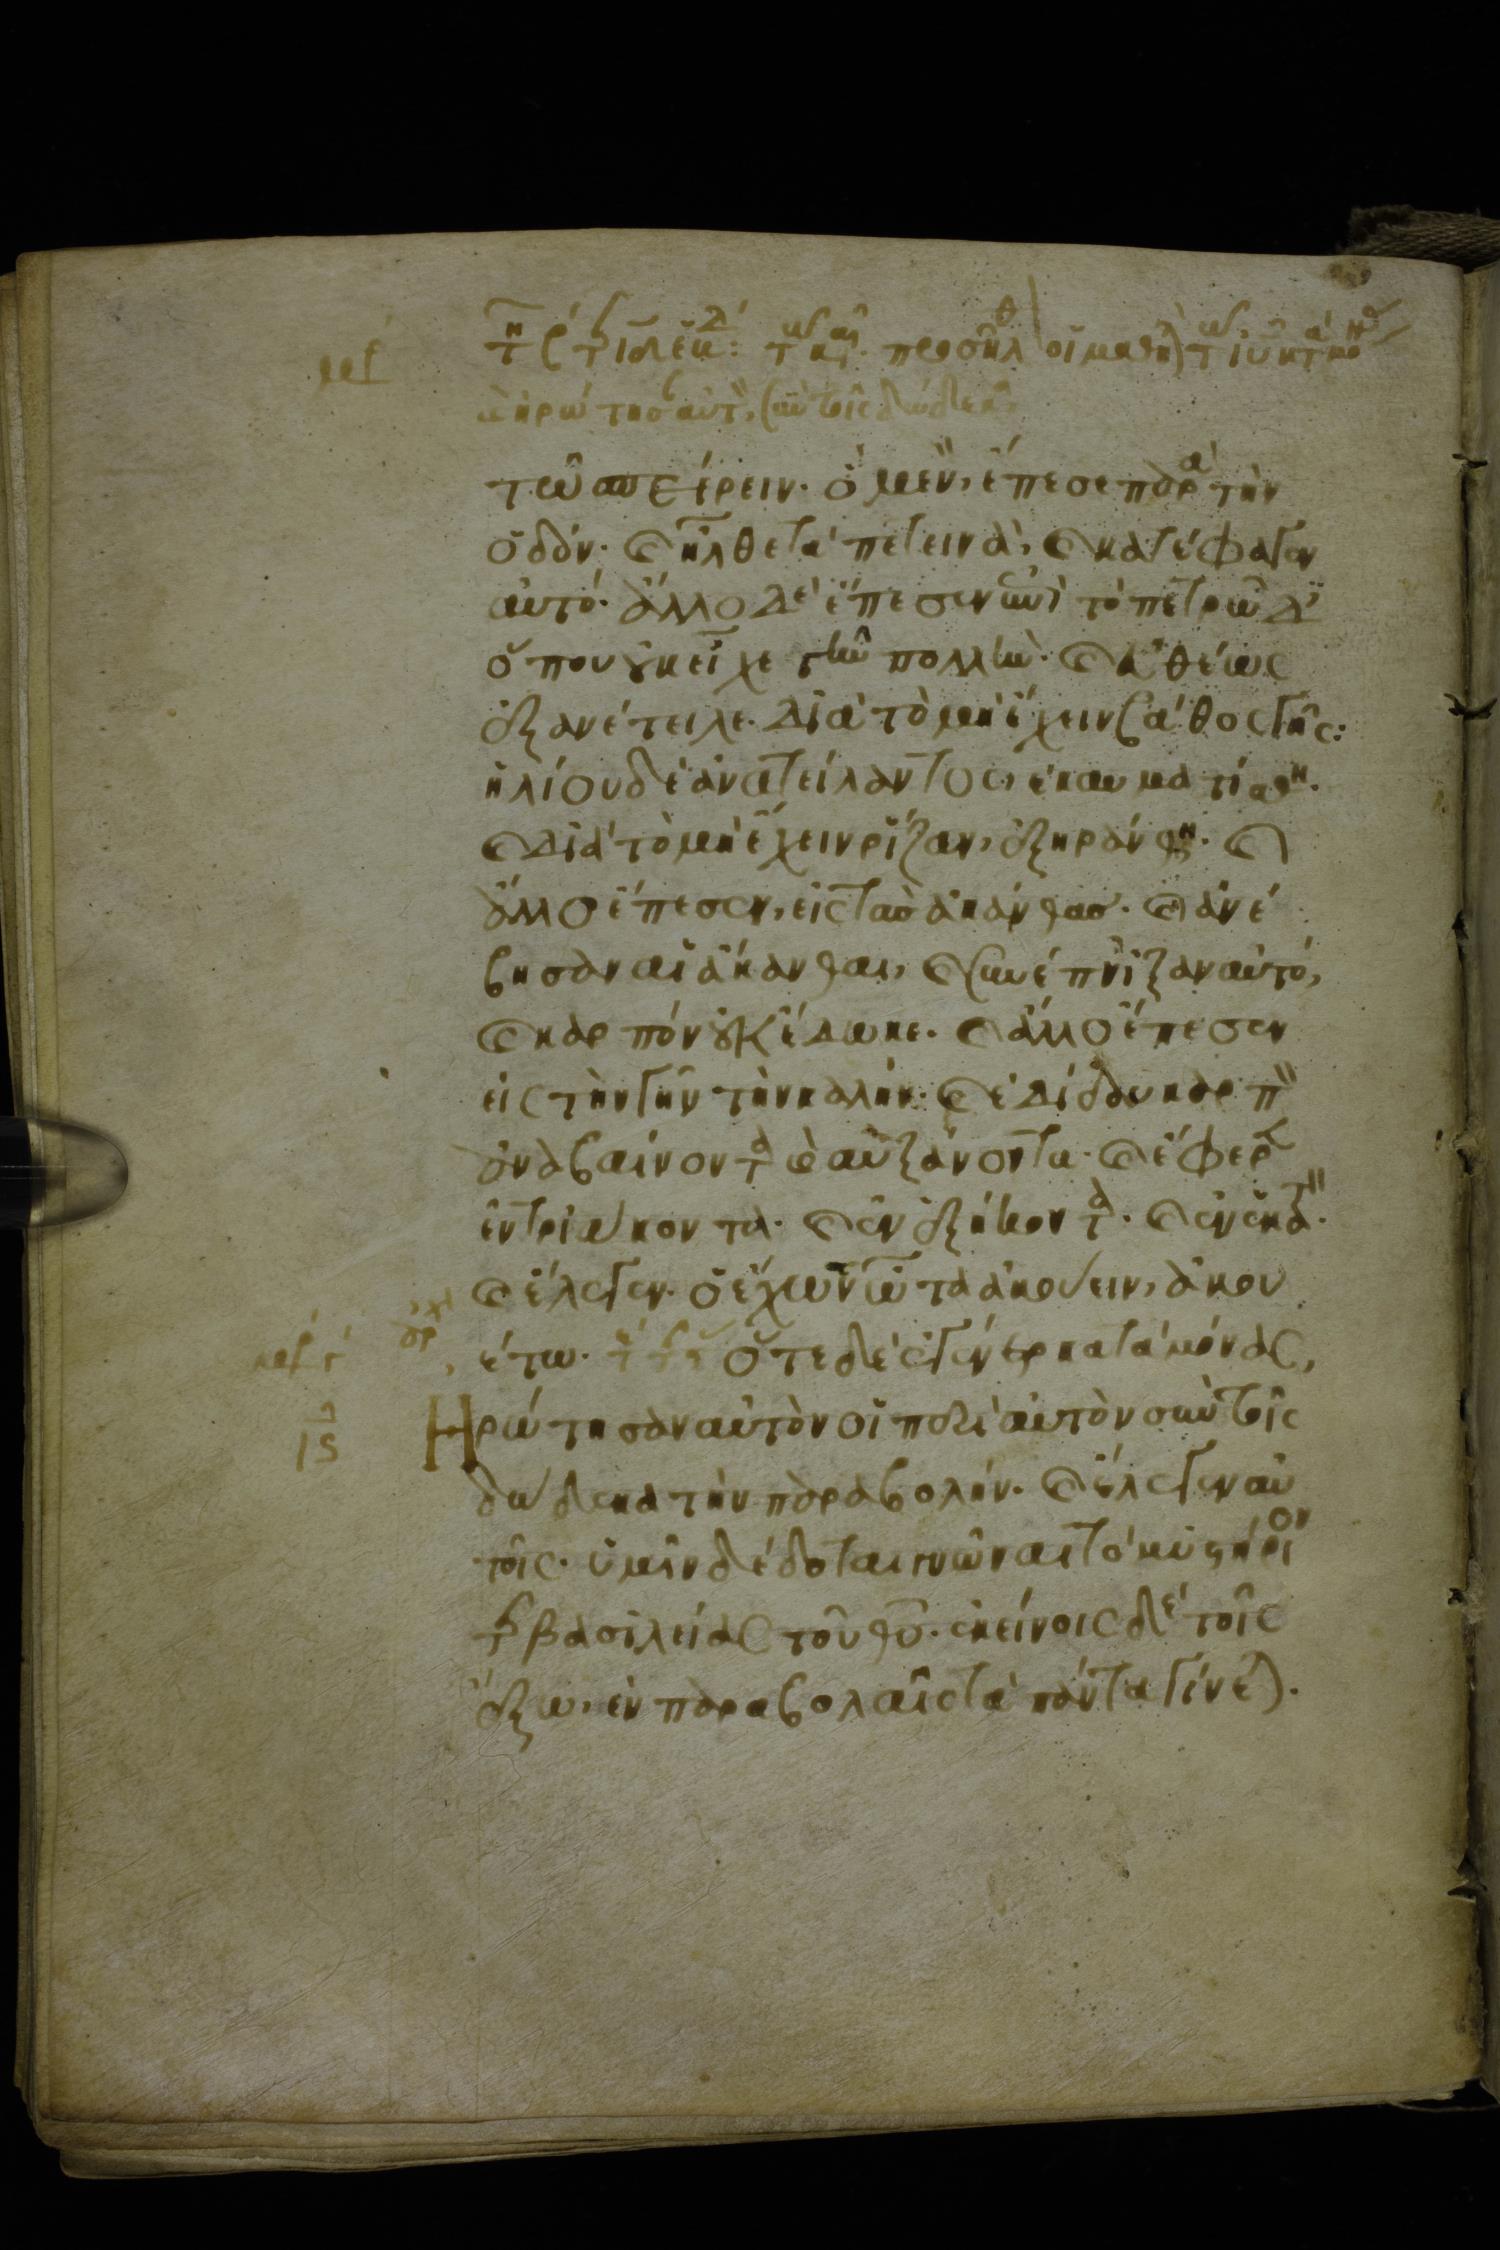 τῶ σπείρειν. ὃ μὲν, ἔπεσε παρὰ τὴν
ὁδόν. καὶ ἦλθε τὰ πετεινὰ, καὶ κατέφαγεν
αὐτό. ἄλλο δὲ ἔπεσεν ἐπὶ τὸ πετρῶδ
ὅπου οὐκ εἶχε γῆν πολλὴν. καὶ εὐθέως
ἐξανέτειλε. διὰ τὸ μὴ ἔχειν βάθος γῆς:
ἡλίου δὲ ἀνατείλαντος, ἐκαυματίσθη.
καὶ διὰ τὸ μὴ ἔχειν ῥίζαν, ἐξηράνθη. καὶ
ἄλλο ἔπεσεν, εἰς τὰς ἀκάνθας. καὶ ἀνέ
βησαν αἱ ἄκανθαι, καὶ συνέπνιξαν αὐτό,
καὶ καρπὸν οὐκ ἔδωκε. καὶ ἄλλο ἔπεσεν
εἰς τὴν γῆν τὴν καλήν. καὶ ἐδίδου καρπ
ἀναβαίνοντα καὶ αὐξάνοντα. καὶ ἔφερ
ἓν τριάκοντα. καὶ ἓν ἑξήκοντα. καὶ ἓν ἑκατ.
καὶ ἔλεγεν. ὁ ἔχων ὦτα ἀκούειν, ἀκου
έτω. ὅτε δὲ ἐγένετο καταμόνας,
Ἠρώτησαν αὐτὸν οἱ περὶ αὐτὸν σὺν τοῖς
δώδεκα τὴν παραβολήν. καὶ ἔλεγεν αὐ
τοῖς. ὑμῖν δέδοται γνῶναι τὸ μυστήριον
τῆς βασιλείας τοῦ θυ. ἐκείνοις δὲ τοῖς
ἔξω, ἐν παραβολαῖς τὰ πάντα γίνεται.